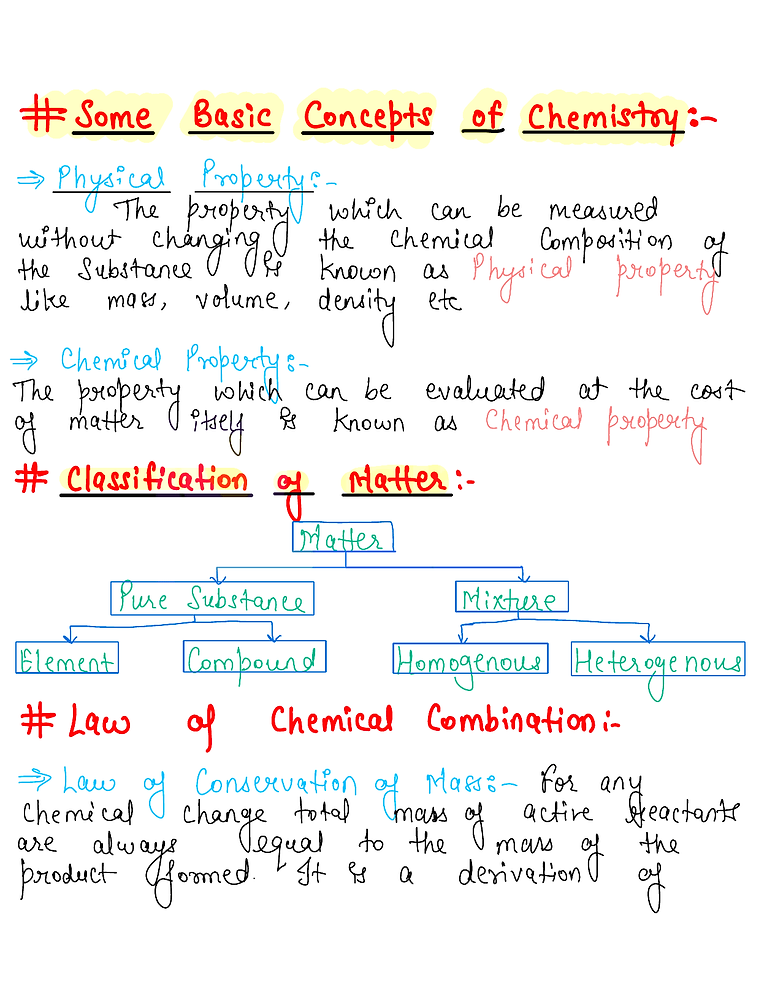 # Some Basic Concepts of Chemistry:-
⇒ Physical Property:-
The property which can be measured
without changing the Chemical Composition of
the Substance is known as Physical property
like mass, volume, density etc
⇒ Chemical Property:-
The property which can be evaluated at the cost
of matter itself is known as Chemical property
# Classification of Matter:-
Matter
Pure Substance Mixture
Element Compound Homogenous Heterogenous
# Law of Chemical Combination:-
⇒ Law of Conservation of Mass:- For any
chemical change total mass of active Reactants
are always equal to the mass of the
product formed. It is a derivation of